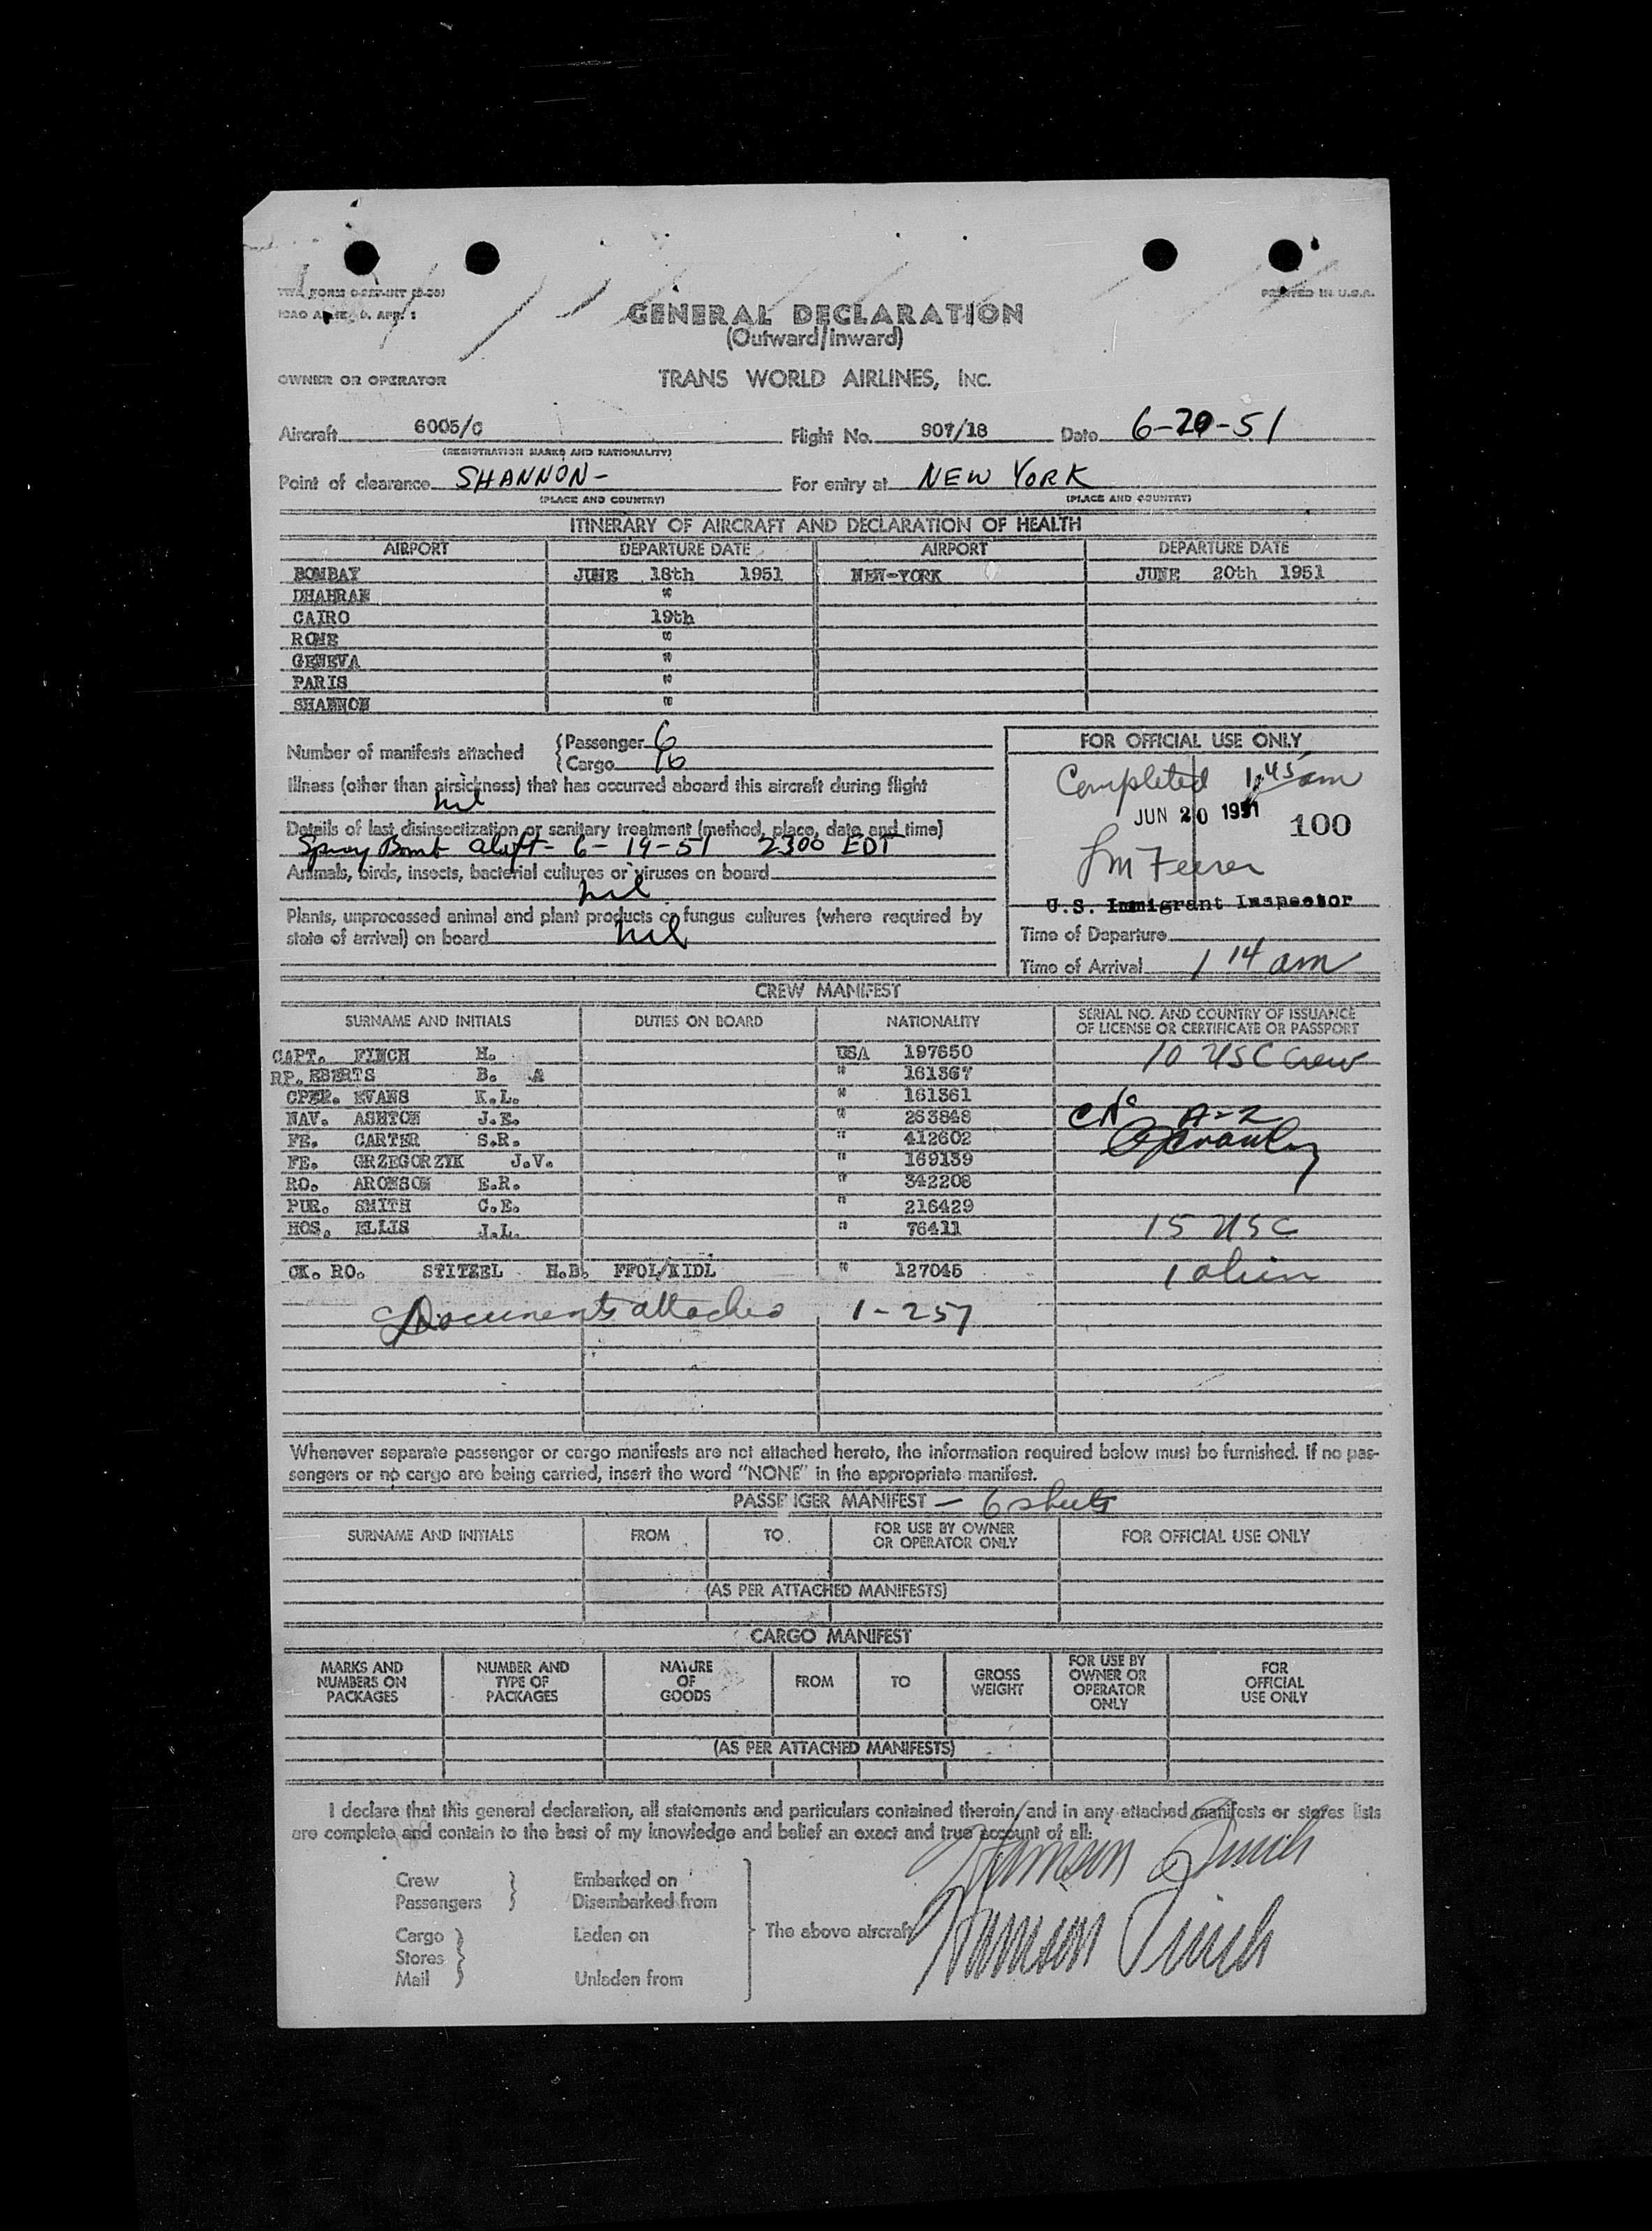 PRINTED IN U.S.A.
GENERAL DECLARATION
(Outward/Inward)
OWNER OR OPERATOR TRANS WORLD AIRLINES, INC.
Aircraft 6005/C Flight No. 907/18 Date 6-20-51
(REGISTRATION MARKS AND NATIONALITY)
Point of clearance SHANNON- For entry at NEW YORK
(PLACE AND COUNTRY) (PLACE AND COUNTRY)
ITINERARY OF AIRCRAFT AND DECLARATION OF HEALTH
AIRPORT DEPARTURE DATE AIRPORT DEPARTURE DATE
BOMBAY JUNE 18th 1951 NEW-YORK JUNE 20th 1951
DHAHRAN "
CAIRO 19th
ROME "
GENEVA "
PARIS "
SHANNON "
Number of manifests attached { Passenger 6
{ Cargo 16
Illness (other than airsickness) that has occurred aboard this aircraft during flight
nil
Details of last disinsectization or sanitary treatment (method, place, date and time)
Spray Bomb aloft- 6-19-51 2300 EDT
Animals, birds, insects, bacterial cultures or viruses on board
nil
Plants, unprocessed animal and plant products or fungus cultures (where required by
state of arrival) on board nil
FOR OFFICIAL USE ONLY
Completed 1:45 am
JUN 20 1951 100
U.S. Immigrant Inspector
Time of Departure
Time of Arrival 1 14 am
CREW MANIFEST
SURNAME AND INITIALS DUTIES ON BOARD NATIONALITY SERIAL NO. AND COUNTRY OF ISSUANCE OF LICENSE OR CERTIFICATE OR PASSPORT
CAPT. FINCH H. USA 197650 10 USC Crew
RP. EBERTS B. A " 161367
OPER. EVANS K.L. " 161361
NAV. ASHTON J.E. " 263848 A-2
FE. CARTER S.R. " 412602
FE. GRZEGORZYK J.V. " 169139
RO. ARONSON E.R. " 342208
PUR. SMITH C.E. " 216429
HOS. ELLIS J.L. " 76411 15 USC
CK. RO. STITZEL H.B. FFOL/KIDL " 127045 1 alien
Documents attached 1-257
Whenever separate passenger or cargo manifests are not attached hereto, the information required below must be furnished. If no pas-
sengers or no cargo are being carried, insert the word "NONE" in the appropriate manifest.
PASSENGER MANIFEST — 6 sheets
SURNAME AND INITIALS FROM TO FOR USE BY OWNER OR OPERATOR ONLY FOR OFFICIAL USE ONLY
(AS PER ATTACHED MANIFESTS)
CARGO MANIFEST
MARKS AND NUMBERS ON PACKAGES NUMBER AND TYPE OF PACKAGES NATURE OF GOODS FROM TO GROSS WEIGHT FOR USE BY OWNER OR OPERATOR ONLY FOR OFFICIAL USE ONLY
(AS PER ATTACHED MANIFESTS)
I declare that this general declaration, all statements and particulars contained therein, and in any attached manifests or stores lists
are complete and contain to the best of my knowledge and belief an exact and true account of all:
Crew } Embarked on
Passengers } Disembarked from
Cargo } Laden on
Stores } The above aircraft
Mail } Unladen from
Harrison Finch
Harrison Finch